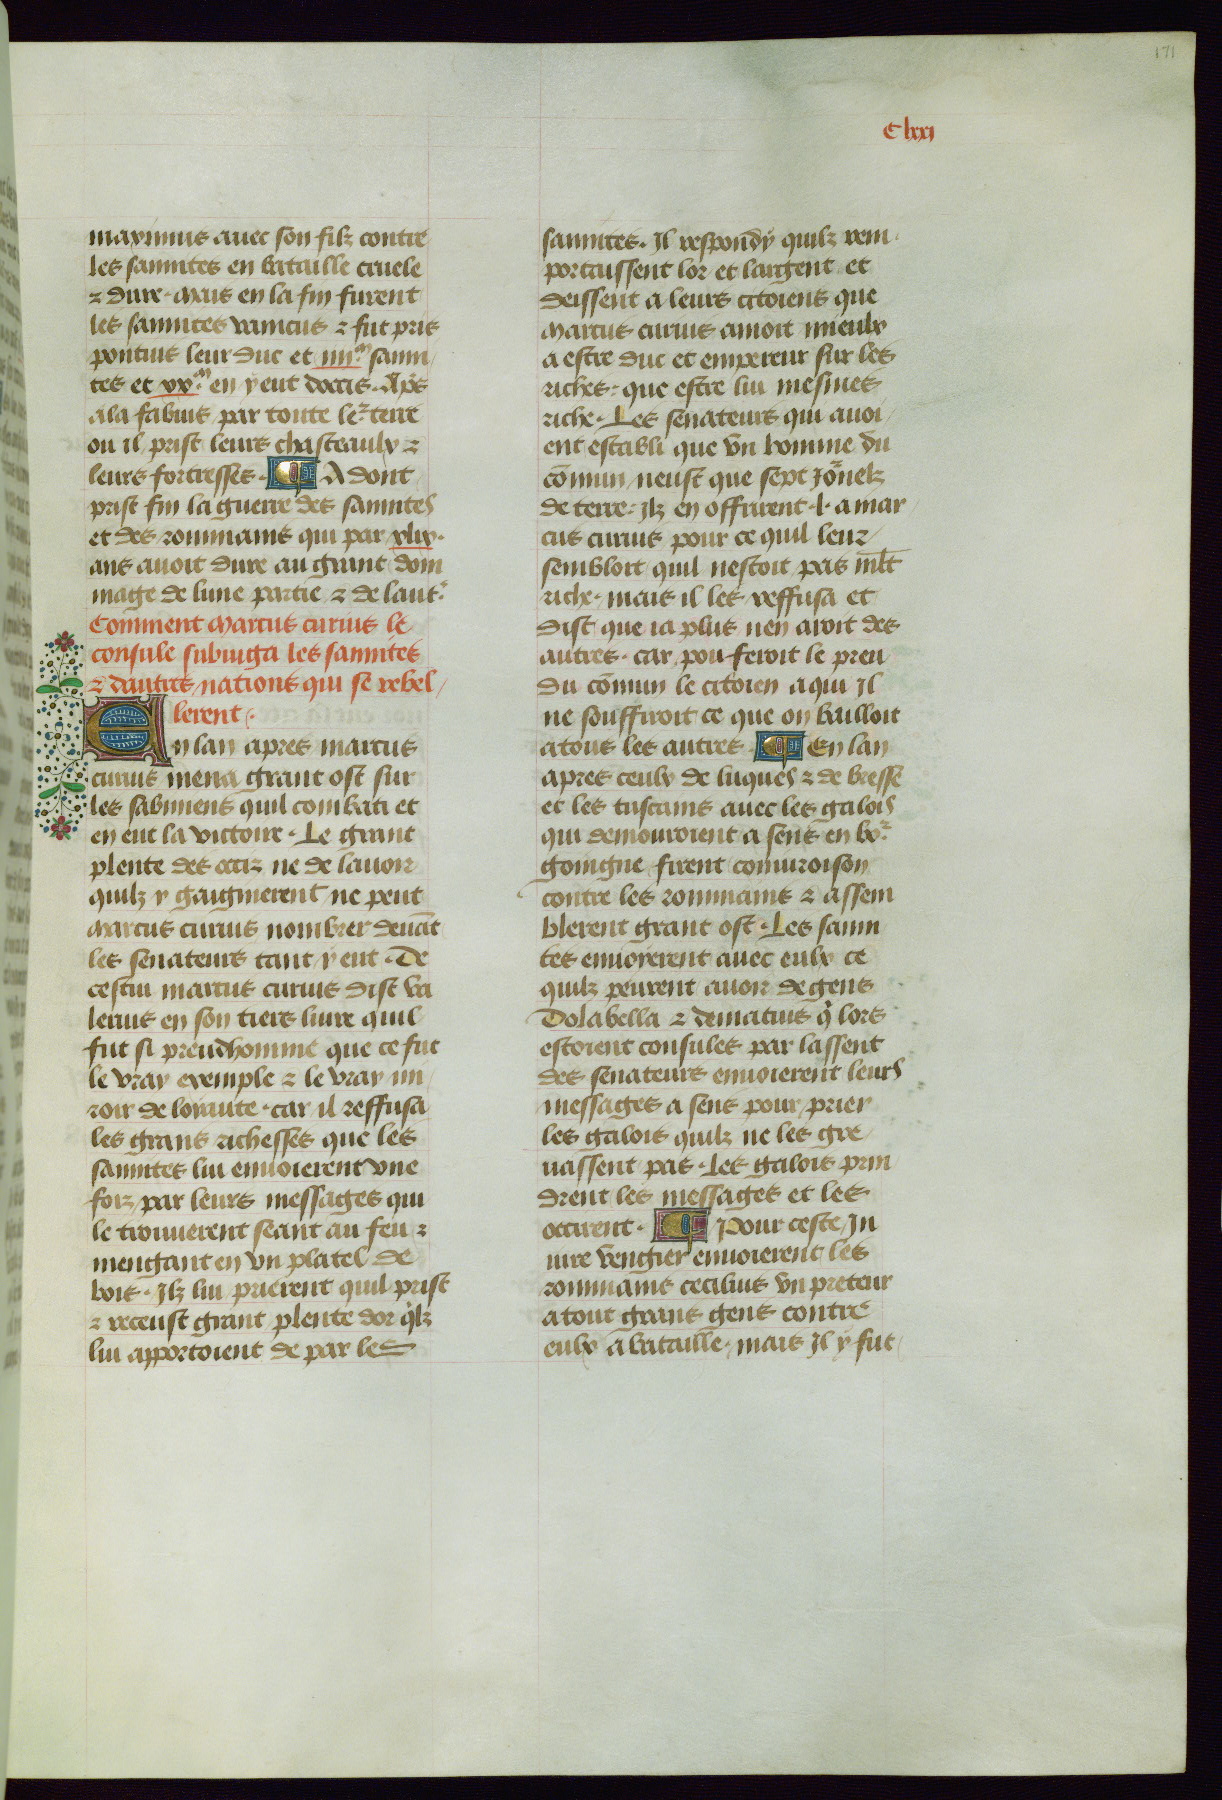 171
C lxxj
maximus auec son filz contre
les samnites en bataille cruele
⁊ dure. mais en la fin furent
les samnites vaincus ⁊ fut pris
pontius leur duc et iiii.m samni
tes et xx.m en y eut doccis. Aps̄
ala fabius par toute ler̄ terre
ou il prist leurs chasteaulx ⁊
leurs fortresses. A dont
prist fin la guerre des samnites
et des rommains qui par xlix.
ans auoit dure au grant dom
mage de lune partie ⁊ de laut.ͬ
Comment Marcus curius le
consule subiuga les samnites
⁊ dautres nations qui se rebel
lerent.
En lan apres marcus
curius mena grant ost sur
les sabiniens quil combati et
en eut la victoire. Le grant
plente des occiz ne de lauoir
quilz y gaignierent ne peut
Marcus curius nombrer deuāt
les senateurs tant y eut. De
cestui marcus curius dist va
lerius en son tiers liure quil
fut si preudhomme que ce fut
le vray exemple ⁊ le vray mi
roir de loyaute. car il reffusa
les grans richesses que les
samnites lui enuoierent vne
foiz par leurs messages qui
le trouuerent seant au feu ⁊
mengant en vn platel de
bois. Ilz lui prierent quil prist
⁊ receust grant plente dor qͥlz
lui apportoient de par les
samnites. Il respondy quilz rem
portaissent lor et largent et
deissent a leurs citoiens que
Marcus curius amoit mieulx
a estre duc et empereur sur les
riches. que estre lui mesmes
riche. Les senateurs qui auoi
ent establi que vn homme du
cōmun neust que sept Jor̄nelz
de terre. Ilz en offrirent .l. a mar
cus curius pour ce quil leur
sembloit quil nestoit pas mlt̄
riche. mais il les reffusa et
dist que ia plus nen aroit des
autres. car pou feroit le preu
du cōmun le citoien a qui Il
ne souffiroit ce que on bailloit
a tous les autres. En lan
apres ceulx de luques ⁊ de bresse
et les tuscains auec les galois
qui demouroient a sens en bor̄
goingne firent coniuroison
contre les rommains ⁊ assem
blerent grant ost. Les samni
tes enuoyerent auec eulx ce
quilz peurent auoir de gens
Dolabella ⁊ demacius qͥ lors
estoient consules par lassent
des senateurs enuoierent leurs
messages a sens pour prier
les galois quilz ne les gre
uassent pas. Les galois prin
drent les messages et les
occirent. Pour ceste In
iure vengier enuoierent les
rommains cecilius vn preteur
a tout grans gens contre
eulx a bataille. mais Il y fut